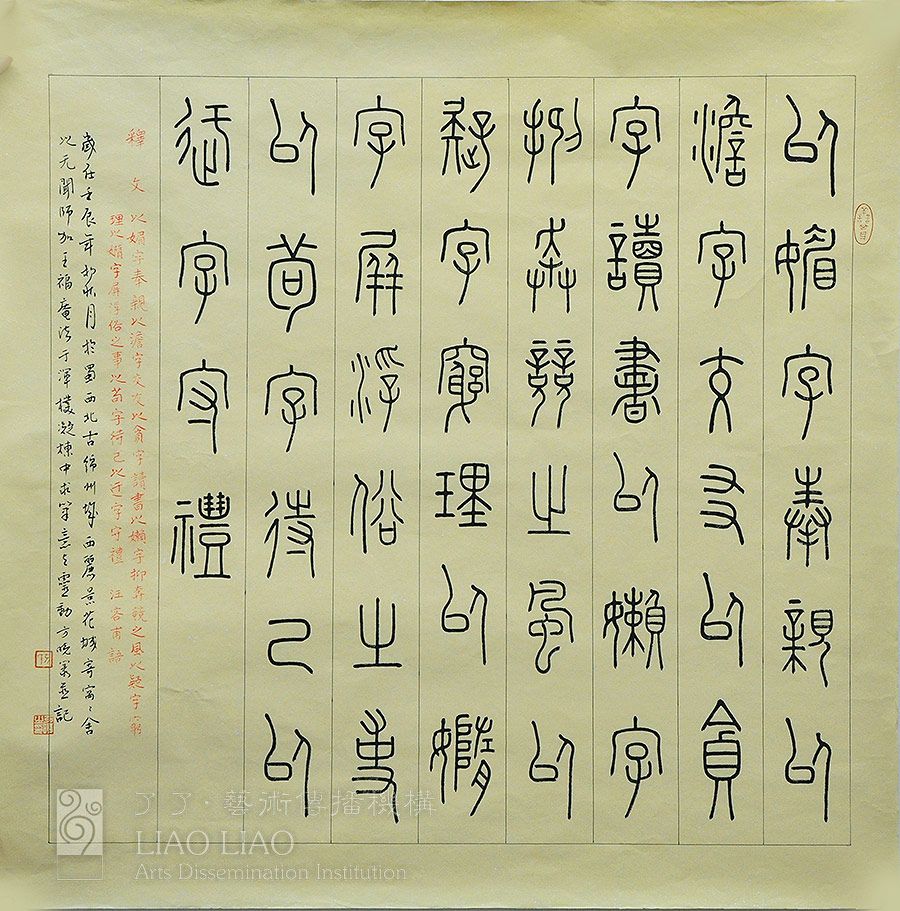 以媚字奉親以
澹字交友以貪
字讀書以嬾字
抑奔競之風以
疑字窮理以嫷
字屏浮俗之事
以苟字待己以
迂字守禮
釋文 以媚字奉親以澹字交友以貪字讀書以嬾字抑奔競之風以疑字窮
理以字屏浮俗之事以苟字待己以迂字守禮 汪容甫語
歲在壬辰年初秋月於蜀西北古綿州城西麗景花城寄寓之舍
以元聞師加王福庵法于渾樸凝中求筆意之靈動方並記
了了·藝術傳播機構
LIAO LIAO
Arts Dissemination Institution